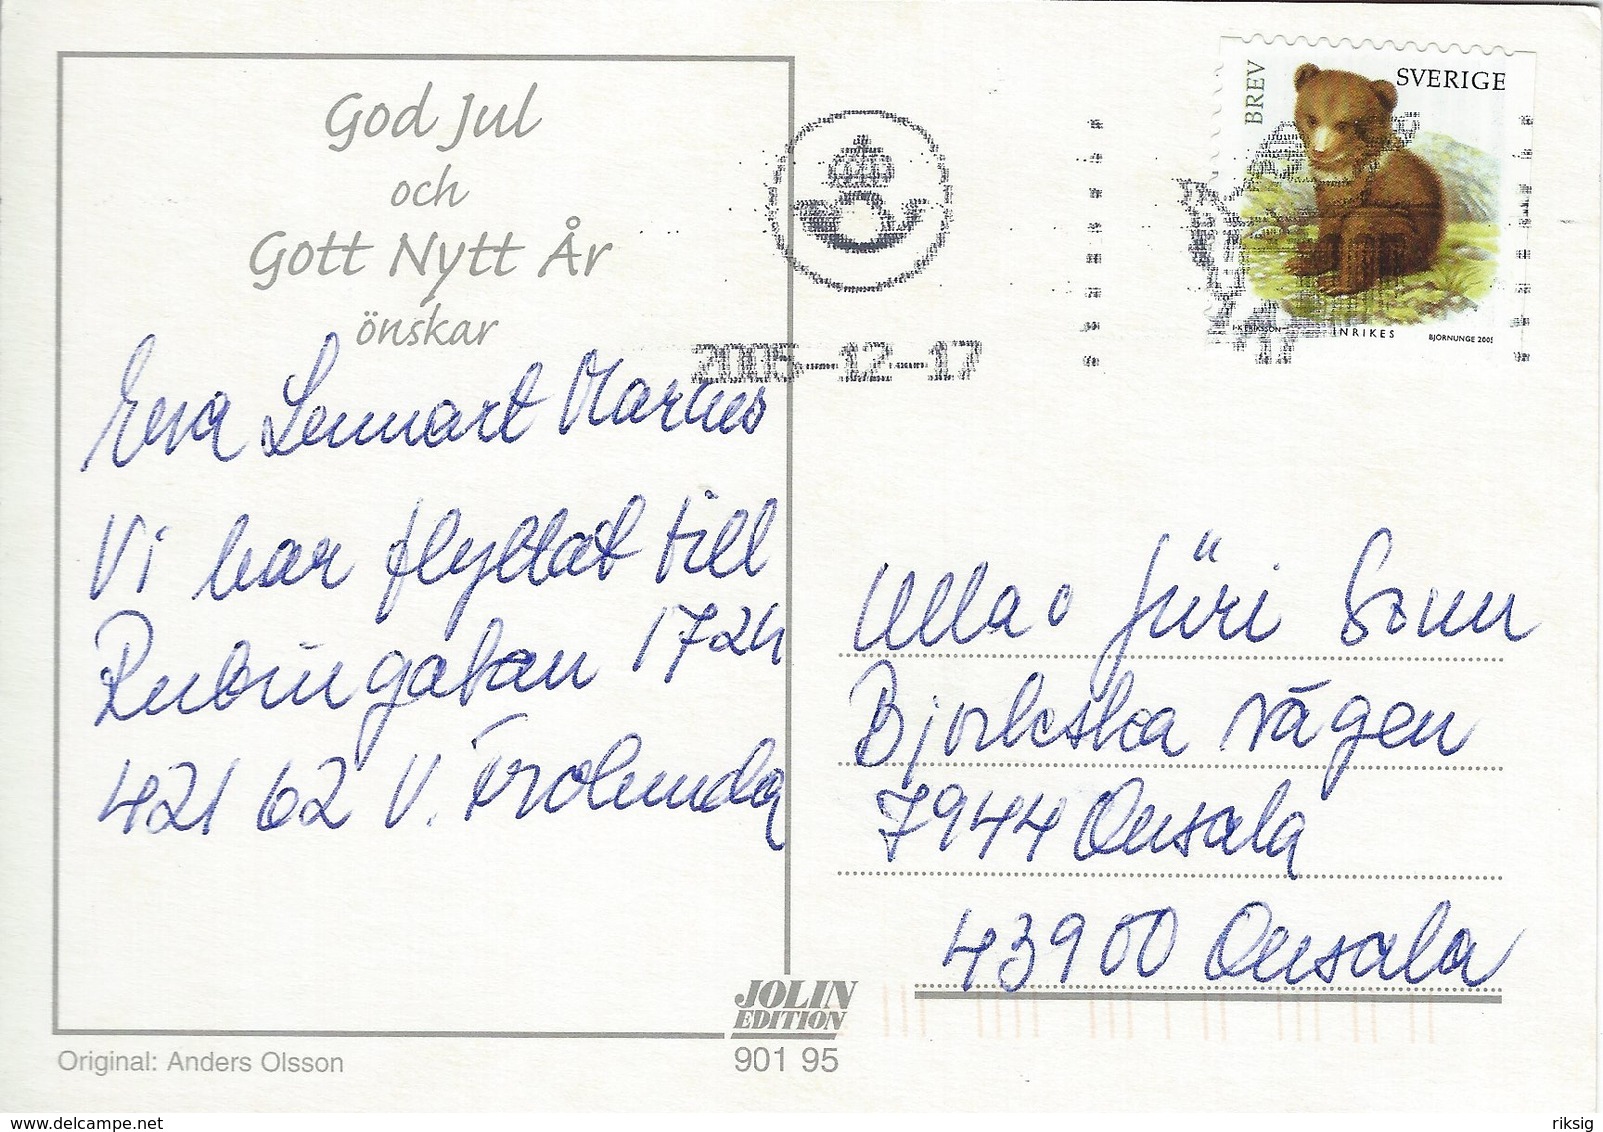 God Jul
och
Gott Nytt År
önskar
Eva Lennart Marcus
Vi har flyttat till
Rubingatan 1724
421 62 V. Frölunda
BREV
SVERIGE
INRIKES
BJÖRNUNGE 2005
2005-12-17
Ulla o Jüri Sonn
Bjorkeska vägen
7944 Onsala
439 00 Onsala
JOLIN
EDITION
901 95
Original: Anders Olsson
riksig